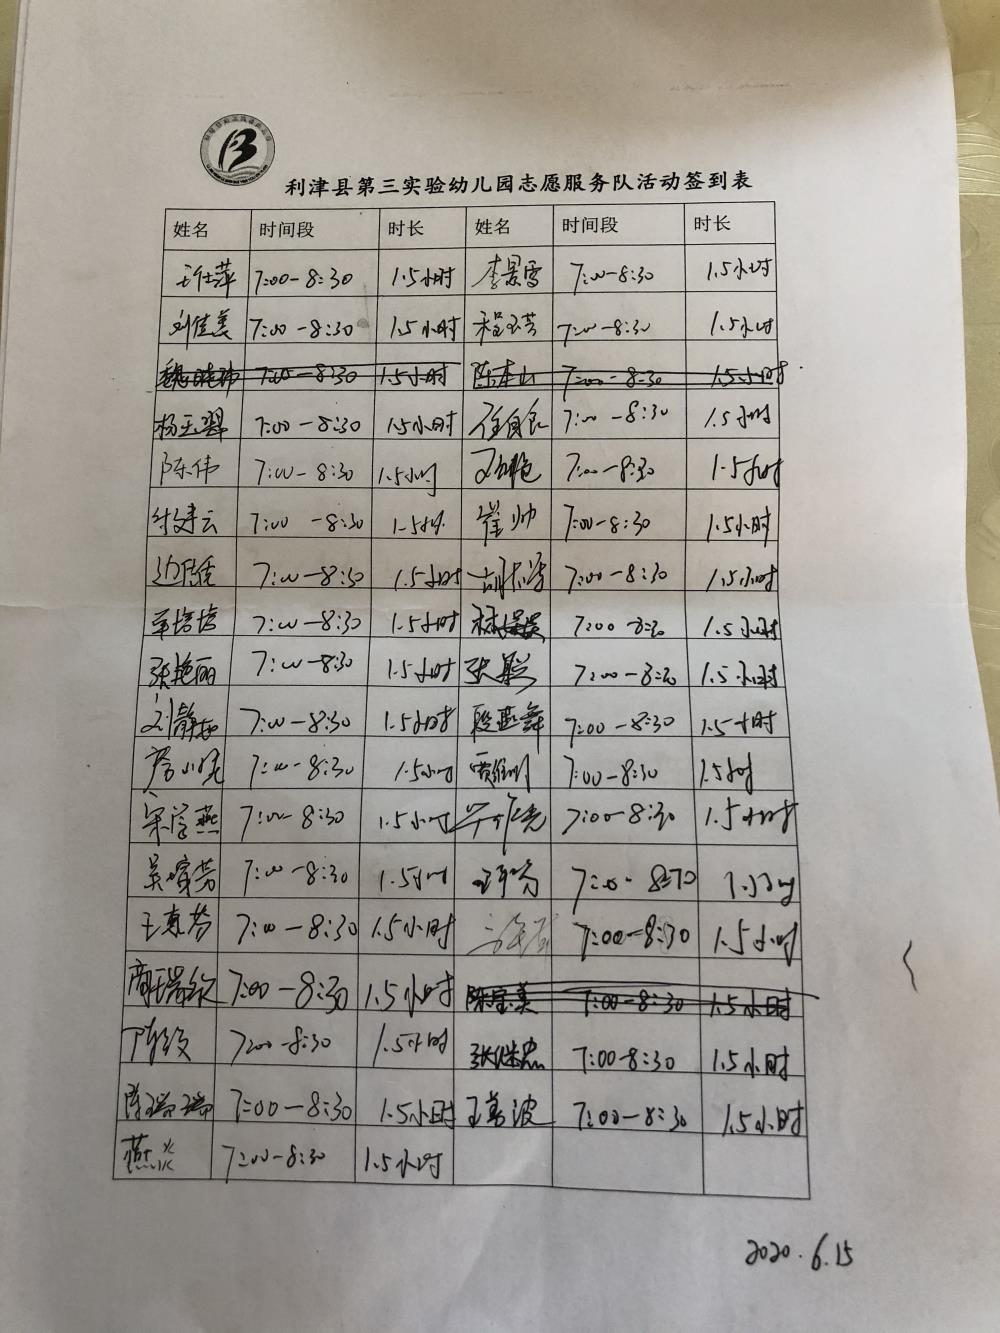 利津县第三实验幼儿园志愿服务队活动签到表
姓名 时间段 时长 姓名 时间段 时长
王仕萍 7:00-8:30 1.5小时 李景雪 7:00-8:30 1.5小时
刘佳美 7:00-8:30 1.5小时 程玉芸 7:00-8:30 1.5小时
魏晓玮 7:00-8:30 1.5小时 陈春山 7:00-8:30 1.5小时
杨玉翠 7:00-8:30 1.5小时 7:00-8:30 1.5小时
陈伟 7:00-8:30 1.5小时 7:00-8:30 1.5小时
付建云 7:00-8:30 1.5小时 崔帅 7:00-8:30 1.5小时
7:00-8:30 1.5小时 7:00-8:30 1.5小时
7:00-8:30 1.5小时 7:00-8:30 1.5小时
张艳丽 7:00-8:30 1.5小时 7:00-8:30 1.5小时
刘静 7:00-8:30 1.5小时 段燕舞 7:00-8:30 1.5小时
7:00-8:30 1.5小时 7:00-8:30 1.5小时
宋学燕 7:00-8:30 1.5小时 7:00-8:30 1.5小时
7:00-8:30 1.5小时 7:00-8:30 1.5小时
7:00-8:30 1.5小时 7:00-8:30 1.5小时
7:00-8:30 1.5小时 陈宝美 7:00-8:30 1.5小时
7:00-8:30 1.5小时 张继忠 7:00-8:30 1.5小时
陈瑞瑞 7:00-8:30 1.5小时 王万波 7:00-8:30 1.5小时
7:00-8:30 1.5小时
2020.6.15